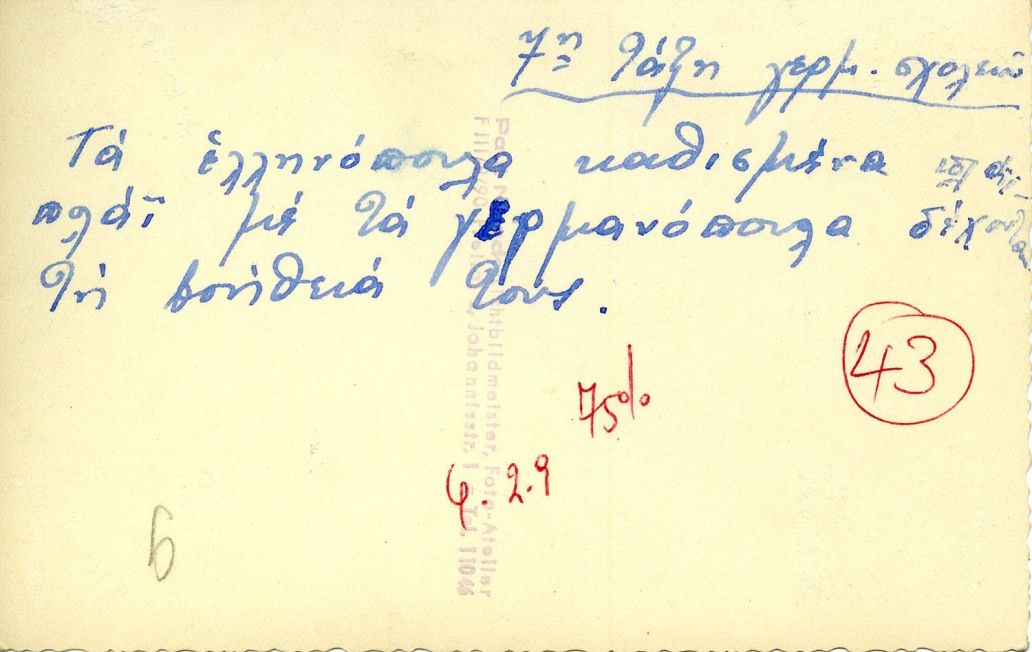 7η τάξη γερμ. σχολείου
Τά ἑλληνόπουλα καθισμένα
πλάϊ μέ τά γερμανόπουλα δέχονται
τή βοήθειά τους.
43
75%
φ. 2.9
6
Lichtbildmeister, Foto-Atelier
Johannisstr. Tel. 11046